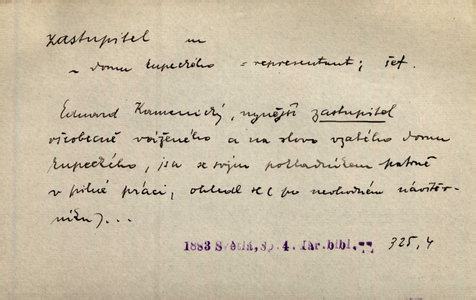 zastupitel m
~ domu kupeckého = representant; šéf.
Eduard Kamenický, nynější zastupitel
všeobecně váženého a na slovo vzatého domu
kupeckého, jsa se svým pokladníkem patrně
v pilné práci, ohledl se (po nevhodném návštěv-
níku)...
1883 Světlá, Sp. 4. Lar. bibl. 77 325,4